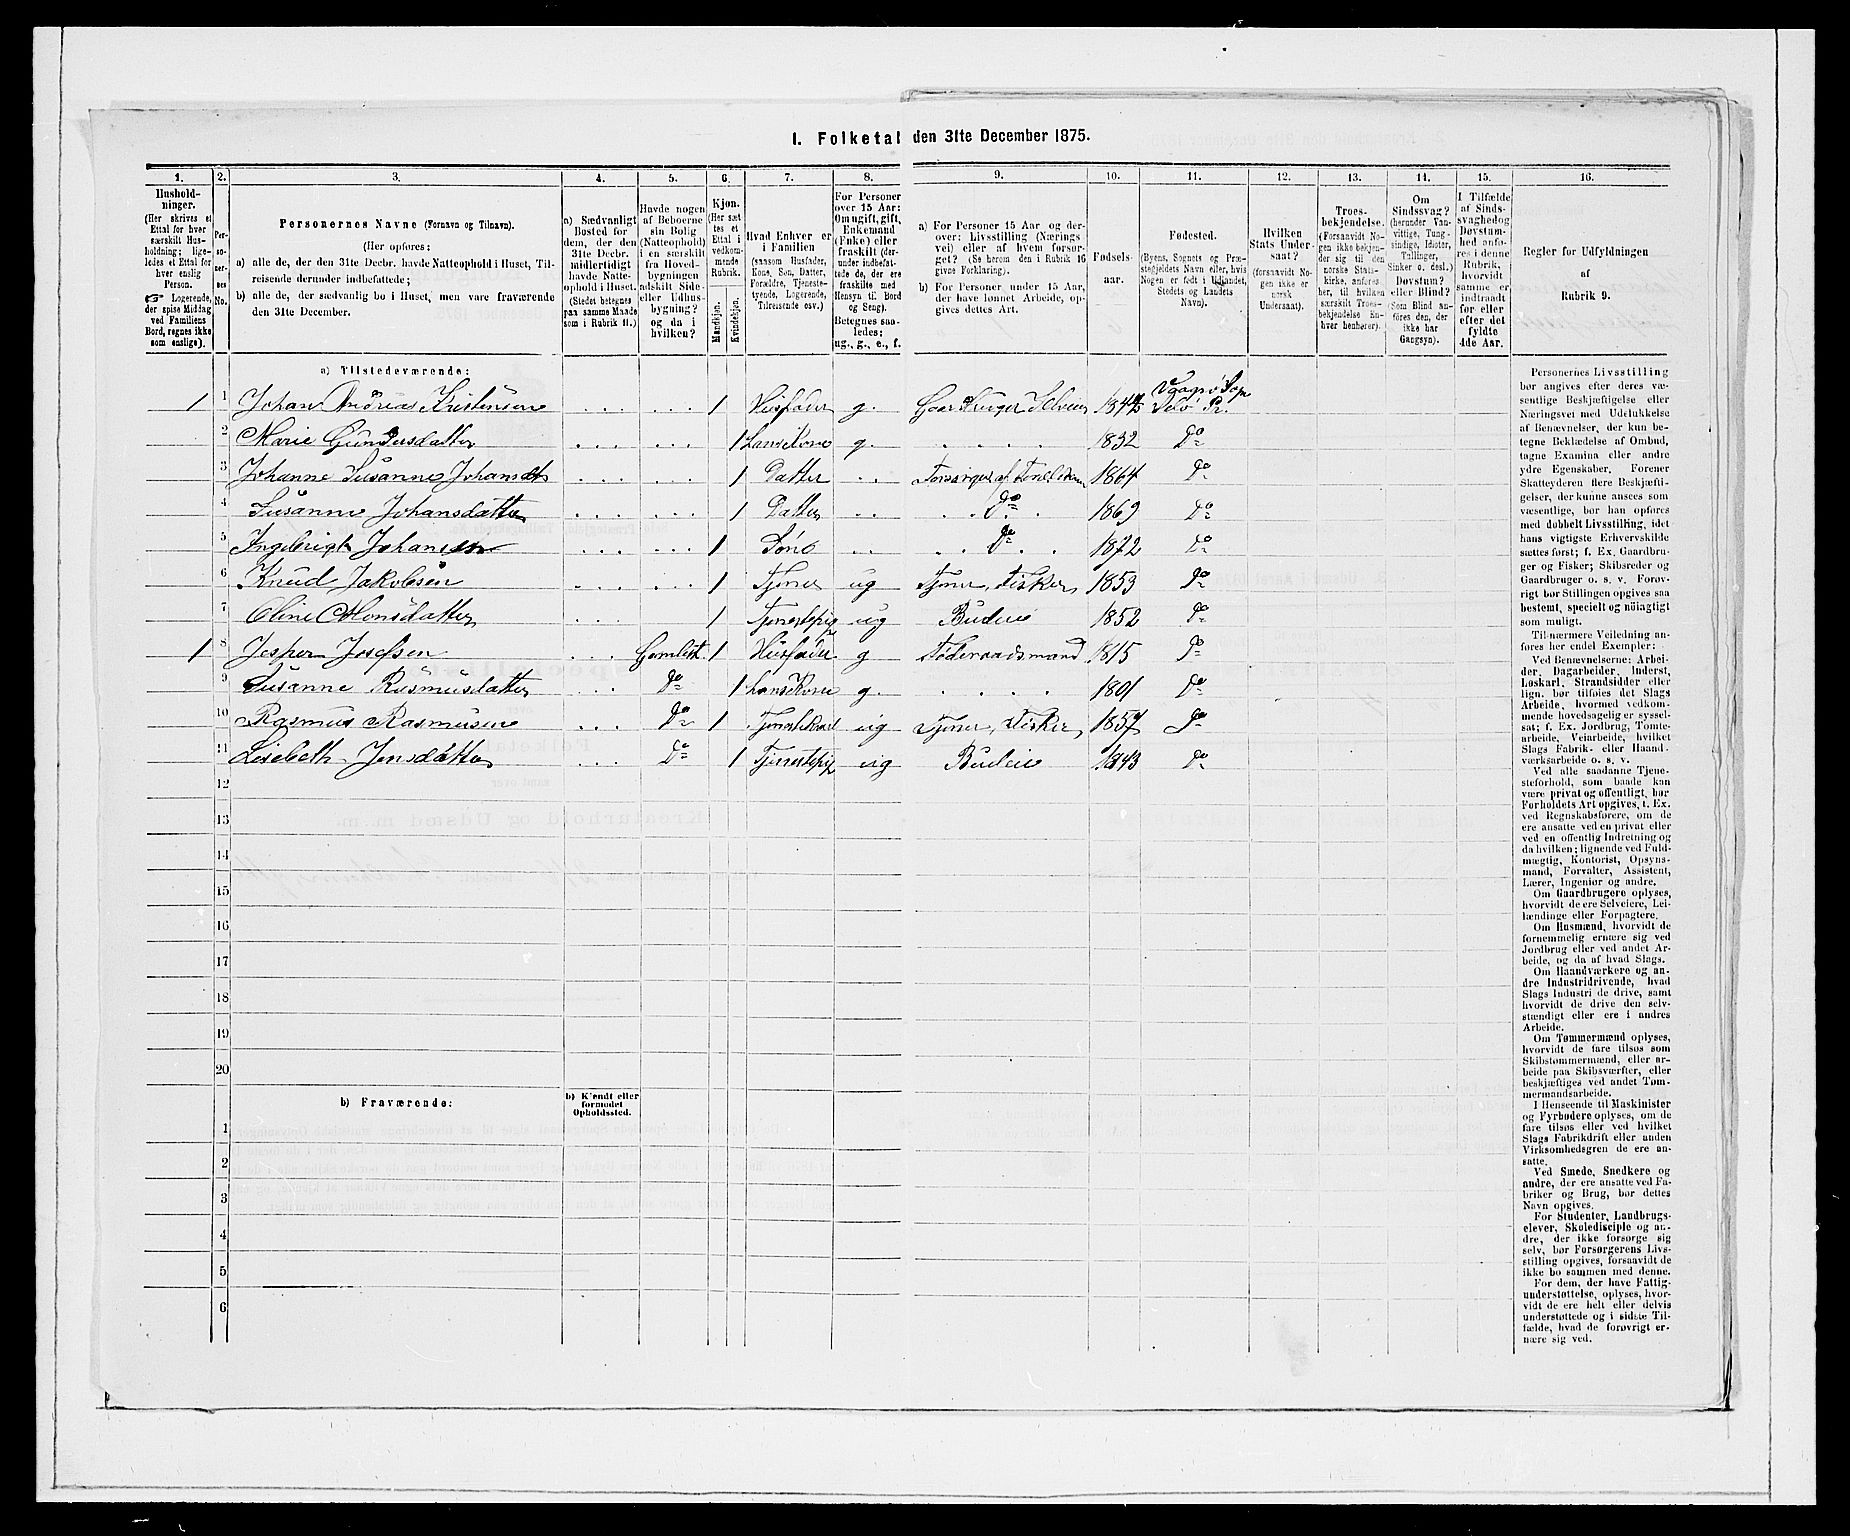 I. Folketal den 31te December 1875.
1. 2. 3. 4. 5. 6. 7. 8. 9. 10. 11. 12. 13. 14. 15. 16.
Hushold-
ninger.
(Her skrives et
Ettal for hver
særskilt Hus-
holdning; lige-
ledes et Ettal for
hver enslig
Person.
☞ Logerende,
der spise Middag
ved Familiens
Bord, regnes ikke
som enslige).
Per-
so-
ner-
nes
No.
Personernes Navne (Fornavn og Tilnavn).
(Her opføres:
a) alle de, der den 31te Decbr. havde Natteophold i Huset, Til-
reisende derunder indbefattede;
b) alle de, der sædvanlig bo i Huset, men vare fraværende
den 31te December.
a) Sædvanligt
Bosted for
dem, der den
31te Decbr.
midlertidigt
havde Natte-
ophold i Huset.
(Stedet betegnes
paa samme Maade
som i Rubrik 11.)
Havde nogen
af Beboerne
sin Bolig
(Natteophold)
i en særskilt
fra Hoved-
bygningen
adskilt Side-
eller Udhus-
bygning?
og da i
hvilken?
Kjøn.
(Her sæt-
tes et
Ettal i
vedkom-
mende
Rubrik.
Mandkjøn.
Kvindekjøn.
Hvad Enhver er
i Familien
(saasom Husfader,
Kone, Søn, Datter,
Forældre, Tjeneste-
tyende, Logerende,
Tilreisende osv.)
For Personer
over 15 Aar:
Om ugift, gift,
Enkemand
(Enke) eller
fraskilt (der-
under indbefat-
tede de, der ere
fraskilte med
Hensyn til Bord
og Seng).
Betegnes saa-
ledes:
ug., g., e., f.
a) For Personer 15 Aar og der-
over: Livsstilling (Nærings-
vei) eller af hvem forsør-
get? (Se herom den i Rubrik 16
givne Forklaring).
b) For Personer under 15 Aar,
der have lønnet Arbeide, op-
gives dettes Art.
Fødsels-
aar.
Fødested.
(Byens, Sognets og Præ-
stegjeldets Navn eller, hvis
Nogen er født i Udlandet,
Stedets og Landets
Navn).
Hvilken
Stats Under-
saat?
(forsaavidt No-
gen ikke er
norsk
Undersaat).
Troes-
bekjendelse.
(Forsaavidt No-
gen ikke bekjen-
der sig til den
norske Stats-
kirke, anføres
her, til hvilken
særskilt Troes-
bekjendelse En-
hver henhører).
Om
Sindssvag?
(herunder Van-
vittige, Tung-
sindige, Idioter,
Tullinger,
Sinker o. desl.)
Døvstum?
eller Blind?
(Som Blind an-
føres den, der
ikke har
Gangsyn).
I Tilfælde
af Sinds-
svaghed og
Døvstum-
hed anfø-
res i denne
Rubrik,
hvorvidt
samme er
indtraadt
før eller
efter det
fyldte
4de Aar.
Regler for Udfyldningen
af
Rubrik 9.
a) Tilstedeværende:
1 1 Johan Andrias Kristensen . . . . . . 1 Husfader g. Gaardbruger Selveier Vaagsø Sogn Selø Pr.
2 Marie Gundersdatter . . . . . . 1 hans Kone g. . . . . 1832 Do
3 Johanne Susanne Johansdt . . . . . . 1 Datter . . Forsørges af Forældrene 1864 Do
4 Susanne Johansdatter . . . . . . 1 Datter . . . . Do . . 1869 Do
5 Ingebrigt Johansen . . . . . . 1 Søn . . . . Do . . 1872 Do
6 Knud Jakobsen . . . . . . 1 Tjener ug Tjener, Fisker 1853 Do
7 Oline Monsdatter . . . 1 Tjenestepig ug Budeie 1852 Do
1 8 Jesper Josefsen . . . 1 Husfader g Føderaadsmand 1815 Do
9 Susanne Rasmusdatter . . . Do 1 hans Kone g. . . . . 1801 Do
10 Rasmus Rasmusen . . . Do 1 Tjenestekarl ug Tjener, Fisker 1857 Do
11 Lisebeth Jensdatter . . . Do 1 Tjenestepig ug Budeie 1843 Do
12
13
14
15
16
17
18
19
20
b) Fraværende:
b) Kjendt eller
formodet
Opholdssted.
1
2
3
4
5
6
Personernes Livsstilling
bør angives efter deres væ-
sentlige Beskjæftigelse eller
Næringsvei med Udelukkelse
af Benævnelser, der kun be-
tegne Beklædelse af Ombud,
tagne Examina eller andre
ydre Egenskaber. Forener
Skatteyderen flere Beskjæfti-
gelser, der kunne ansees som
væsentlige, bør han opføres
med dobbelt Livsstilling, idet
hans vigtigste Erhvervskilde
sættes først; f. Ex. Gaardbru-
ger og Fisker; Skibsreder og
Gaardbruger o. s. v. Forøv-
rigt bør Stillingen opgives saa
bestemt, specielt og nøiagtigt
som muligt.
Til nærmere Veiledning an-
føres her endel Exempler:
Ved Benævnelserne: Arbei-
der, Dagarbeider, Inderst,
Løskarl, Strandsidder eller
lign. bør tilføies det Slags
Arbeide, hvormed vedkom-
mende hovedsagelig er syssel-
sat; f. Ex. Jordbrug, Tomte-
arbeide, Veiarbeide, hvilket
Slags Fabrik- eller Haand-
værksarbeide o. s. v.
Ved alle saadanne Tjene-
steforhold, som baade kan
være privat og offentligt, bør
Forholdets Art opgives, t. Ex.
ved Regnskabsførere, om de
ere ansatte ved en privat eller
ved en offentlig Indretning og
da hvilken; lignende ved Fuld-
mægtig, Kontorist, Opsyns-
mand, Forvalter, Assistent,
Lærer, Ingeniør og andre.
Om Gaardbrugere oplyses,
hvorvidt de ere Selveiere, Lei-
lændinge eller Forpagtere.
Om Husmænd, hvorvidt de
fornemmelig ernære sig ved
Jordbrug eller ved andet Ar-
beide, og da af hvad Slags.
Om Haandværkere og an-
dre Industridrivende, hvad
Slags Industri de drive, samt
hvorvidt de drive den selv-
stændigt eller ere i andres
Arbeide.
Om Tømmermænd oplyses,
hvorvidt de fare tilsøs som
Skibstømmermænd, eller ar-
beide paa Skibsværfter, eller
beskjæftiges ved andet Tøm-
mermandsarbeide.
I Henseende til Maskinister
og Fyrbødere oplyses, om de
fare tilsøs eller ved hvilket
Slags Fabrikdrift eller anden
Virksomhedsgren de ere an-
satte.
Ved Smede, Snedkere og
andre, der ere ansatte ved Fa-
briker og Brug, bør dettes
Navn opgives.
For Studenter, Landbrugs-
elever, Skoledisciple og an-
dre, der ikke forsørge sig
selv, bør Forsørgerens Livs-
stilling opgives, forsaavidt de
ikke bo sammen med denne.
For dem, der have Fattig-
understøttelse, oplyses, hvor-
vidt de ere helt eller delvis
understøttede og i sidste Til-
fælde, hvad de forøvrigt er-
nære sig ved.